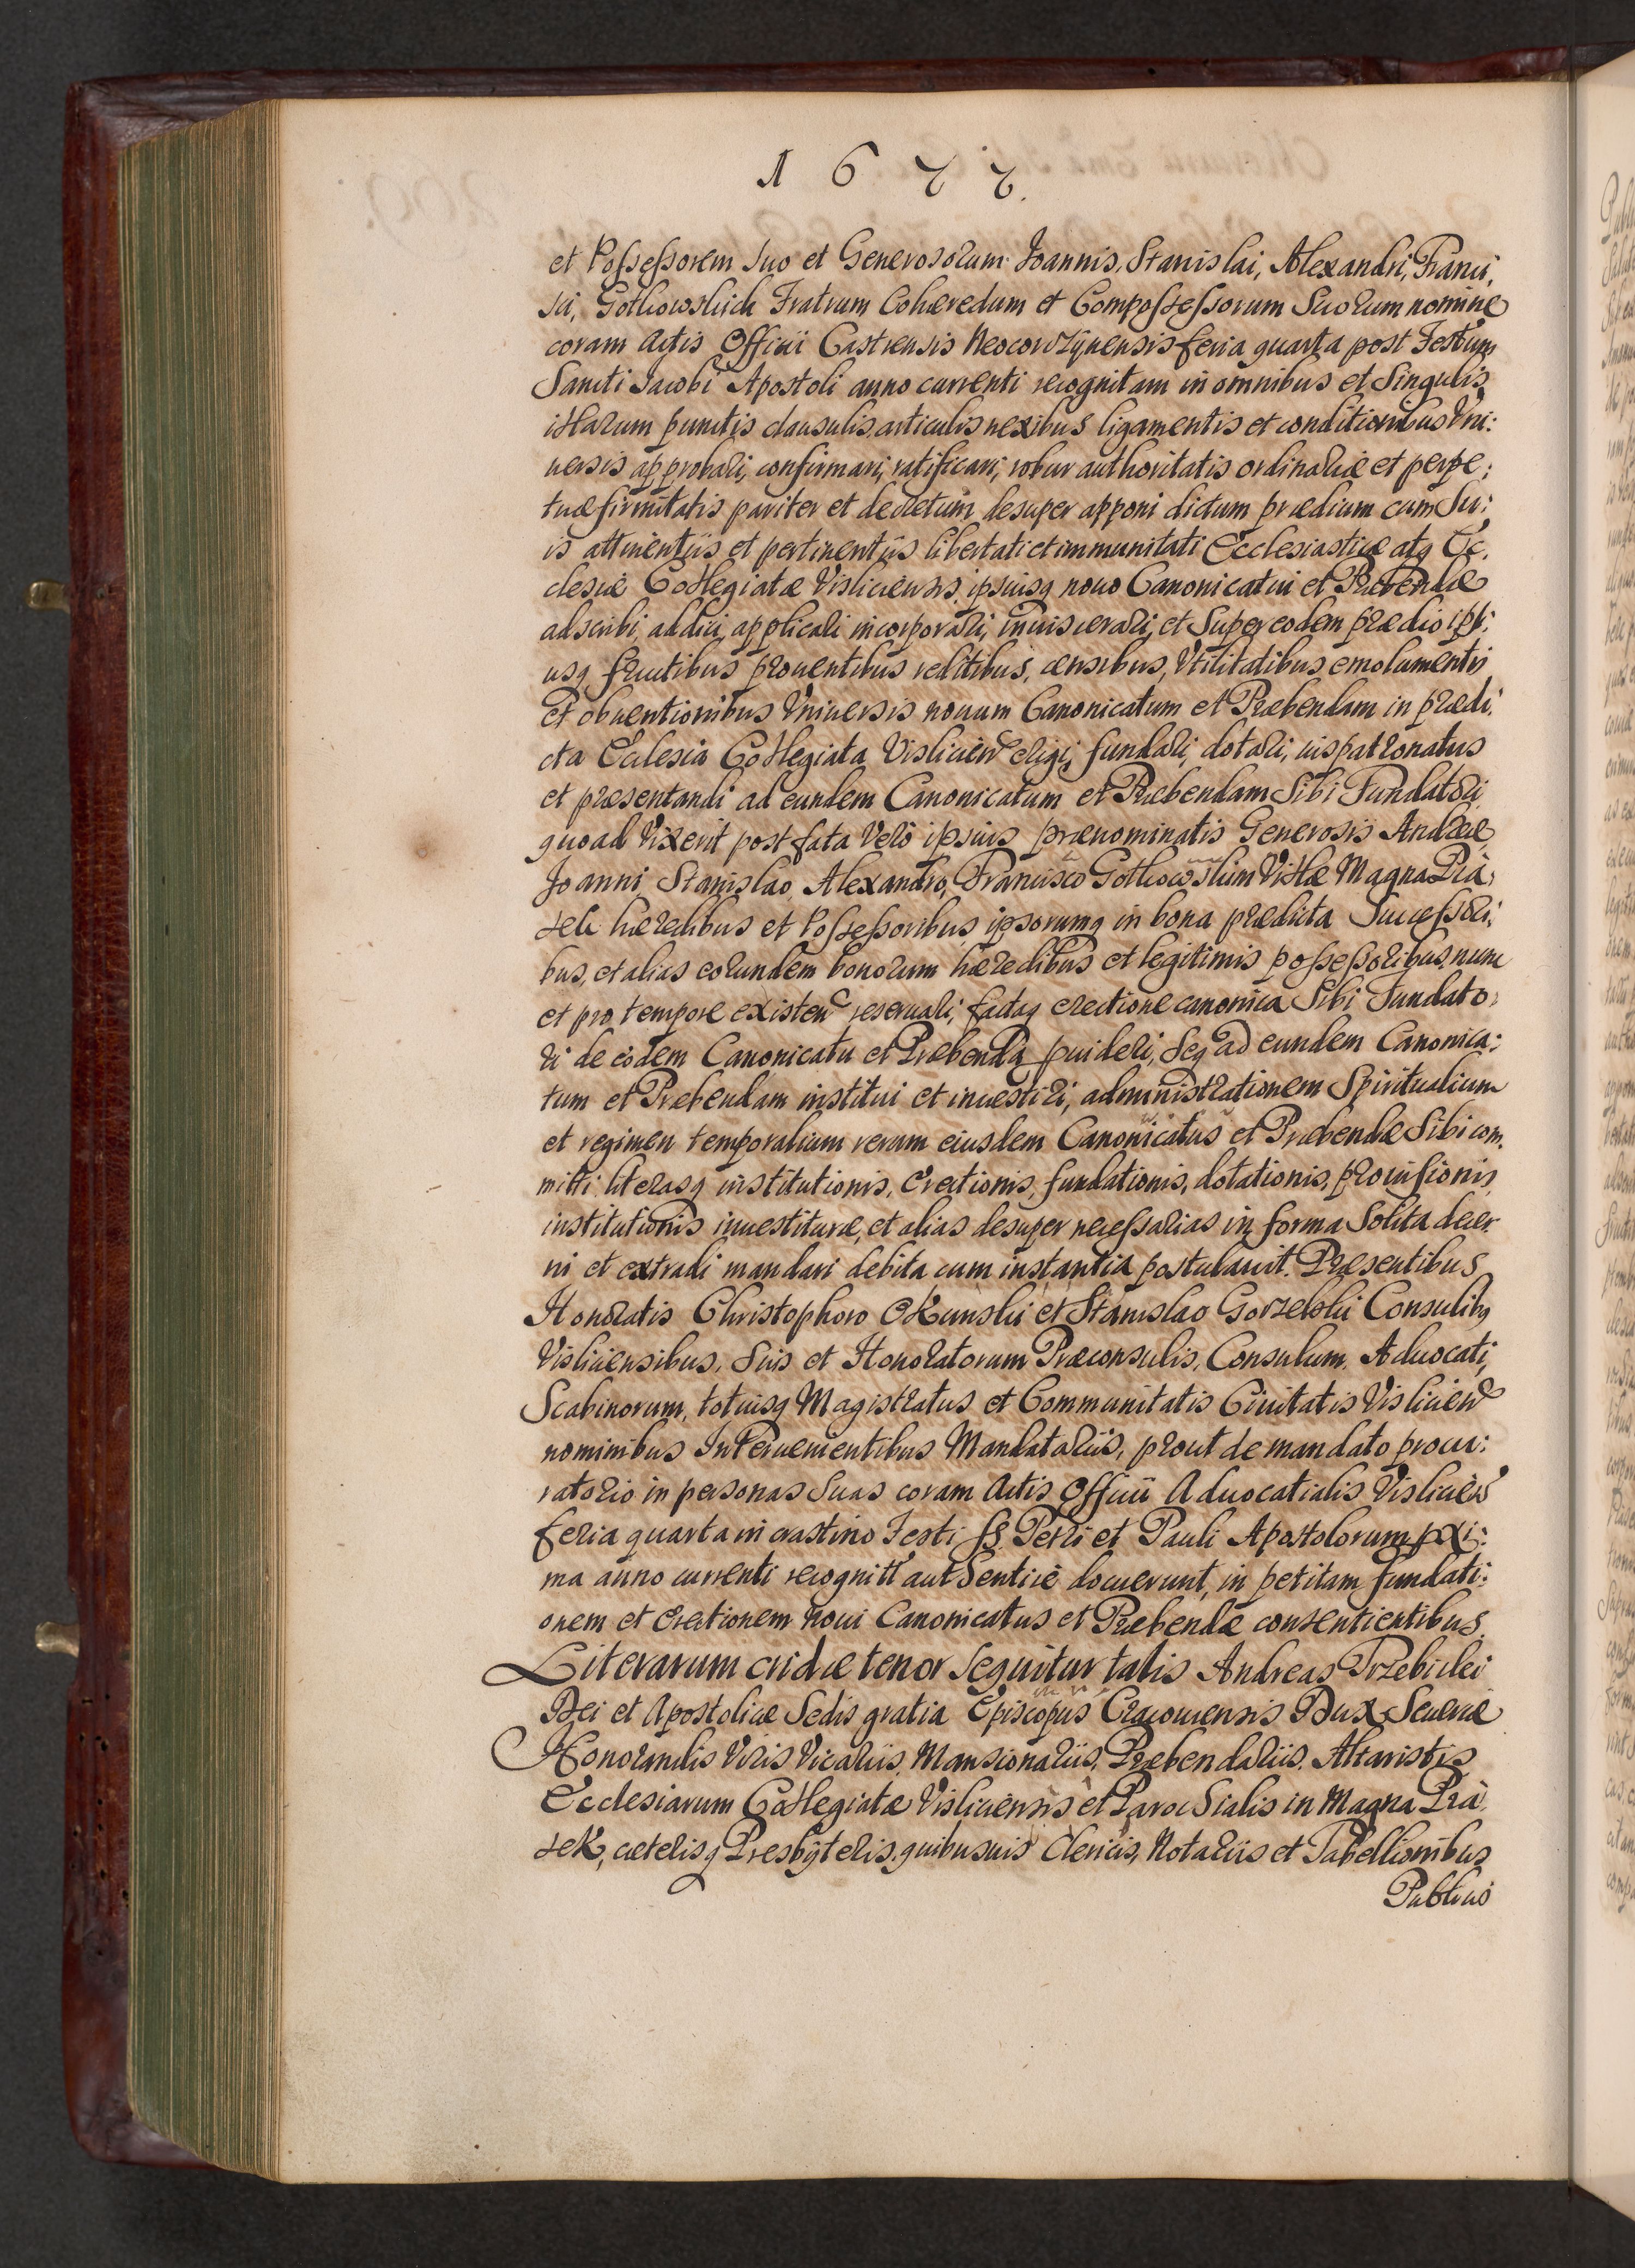 1677.
et Possessorem suo et Generosorum Joannis, Stanislai, Alexandri, Franci,
sci, Gothowskich Fratrum Cohæredum et Compossessorum Suorum nomine
coram Actis Officii Castrensis Neocorczÿnensis feria quarta post Festum
Sancti Jacobi Apostoli anno currenti recognitam in omnibus et Singulis
illarum punctis clausulis articulis nexibus ligamentis et conditionibus Vni:
uersis approbari, confirmari, ratificari, robur authoritatis ordinariæ et perpe:
tuæ firmitatis pariter et decretum desuper apponi dictum prædium cum Su:
is attinentiis et pertinentiis libertati et immunitati Ecclesiasticæ atq Ec,
clesiæ Collegiatæ Visliciensis, ipsiusq nouo Canonicatui et Præbendæ
adscribi, addici, applicari incorporari, inuiscerari, et Super eodem prædio ipsi:
usq fructibus prouentibus reditibus, censibus, Vtilitatibus emolumentis
et obuentionibus Vniuersis nouum Canonicatum et Præbendam in prædi,
cta Ecclesia Collegiata Vislicien erigi, fundari, dotari, iuspatronatus
et præsentandi ad eundem Canonicatum et Præbendam Sibi Fundatori
quoad Vixerit post fata Vero ipsius prænominatis Generosis Andreæ,
Joanni, Stanislao, Alexandro, Francisco Gothowskim Villæ Magna Pia,
sek hæredibus et Possessoribus ipsorumq in bona prædicta Successori,
bus, et alias eorundem bonorum hæredibus et legitimis possessoribus nunc
et pro tempore existen reseruari, factaq erectione canonica Sibi Fundato,
ri de eodem Canonicatu et Præbenda puideri, seq ad eundem Canonica:
tum et Præbendam institui et inuestiri, administrationem Spiritualium
et regimen temporalium rerum eiusdem Canonicatus et Præbendæ Sibi com,
mitti literasq institutionis, Erectionis, fundationis, dotationis, prouisionis
institutionis inuestituræ, et alias desuper necessarias in forma Solita decer
ni et extradi mandari debita cum instantia postulauit. Præsentibus
Honoratis Christophoro Okunski et Stanislao Gorzelski Consulibq
Visliciensibus, Suis et Honoratorum Præconsulis, Consulum, Aduocati,
Scabinorum, totiusq Magistratus et Communitatis Ciuitatis Vislicien
nominibus Interuenientibus Mandatariis, prout de mandato procu:
ratorio in personas Suas coram Actis Officii Aduocatialis Vislicien
feria quarta in crastino Festi SS. Petri et Pauli Apostolorum pxi:
ma anno currenti recognitt authentice docuerunt, in petitam fundati:
onem et Erectionem noui Canonicatus et Præbendæ consentientibus.
Literarum cridæ tenor sequitur talis Andreas Trzebicki
Dei et Apostolicæ Sedis gratia Episcopus Cracouiensis Dux Seueriæ
Honorandis Viris Vicariis, Mansionariis, Præbendariis, Altaristis
Ecclesiarum Collegiatæ Visliciensis et Parochialis in Magna Pia,
sek, cæterisq Presbÿteris, quibusuis Clericis, Notariis et Tabellionibus
Publicis